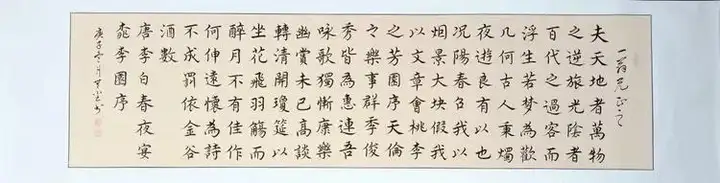 一翁兄正之
夫天地者萬物
之逆旅光陰者
百代之過客而
浮生若梦為歡
几何古人秉燭
夜遊良有以也
况陽春召我以
烟景大块假我
以文章會桃李
之芳園序天倫
之樂事群季俊
秀皆為惠連吾
咏歌獨慚康樂
幽賞未已高談
轉清開瓊筵以
坐花飛羽觴而
醉月不有佳作
何伸遠懷為詩
不成罰依金谷
酒數
唐李白春夜宴
桃李園序
庚子冬月